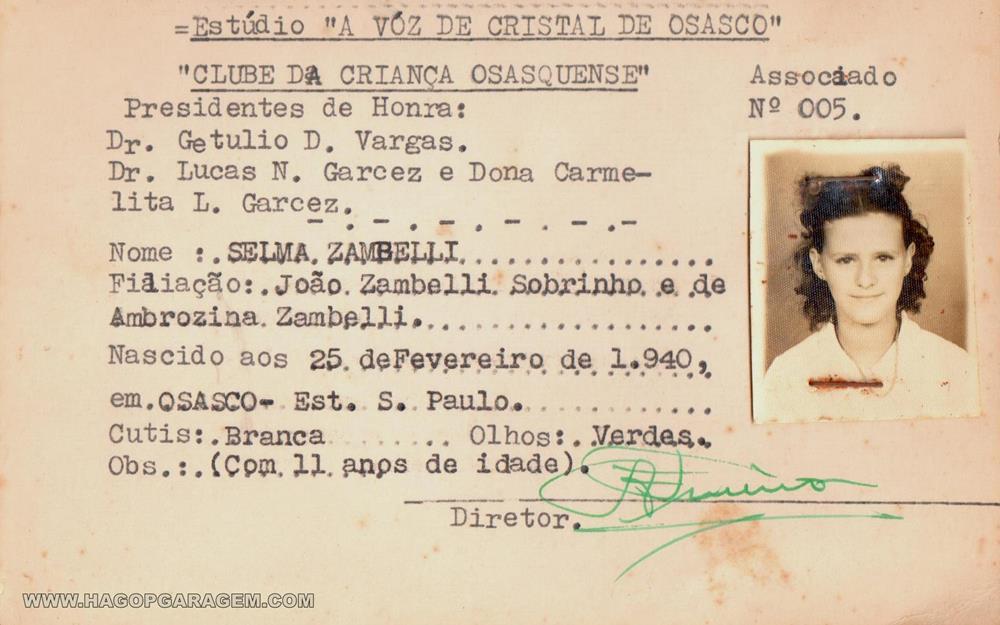 =Estúdio "A VÓZ DE CRISTAL DE OSASCO"
"CLUBE DA CRIANÇA OSASQUENSE"
Associado
Nº 005.
Presidentes de Honra:
Dr. Getulio D. Vargas.
Dr. Lucas N. Garcez e Dona Carme-
lita L. Garcez.
Nome :.SELMA ZAMBELLI
Filiação:.João Zambelli Sobrinho e de
Ambrozina Zambelli.
Nascido aos 25 deFevereiro de 1.940,
em.OSASCO- Est. S. Paulo.
Cutis:.Branca ........ Olhos:. Verdes.
Obs.:.(Com 11 anos de idade).
Diretor.
WWW.HAGOPGARAGEM.COM